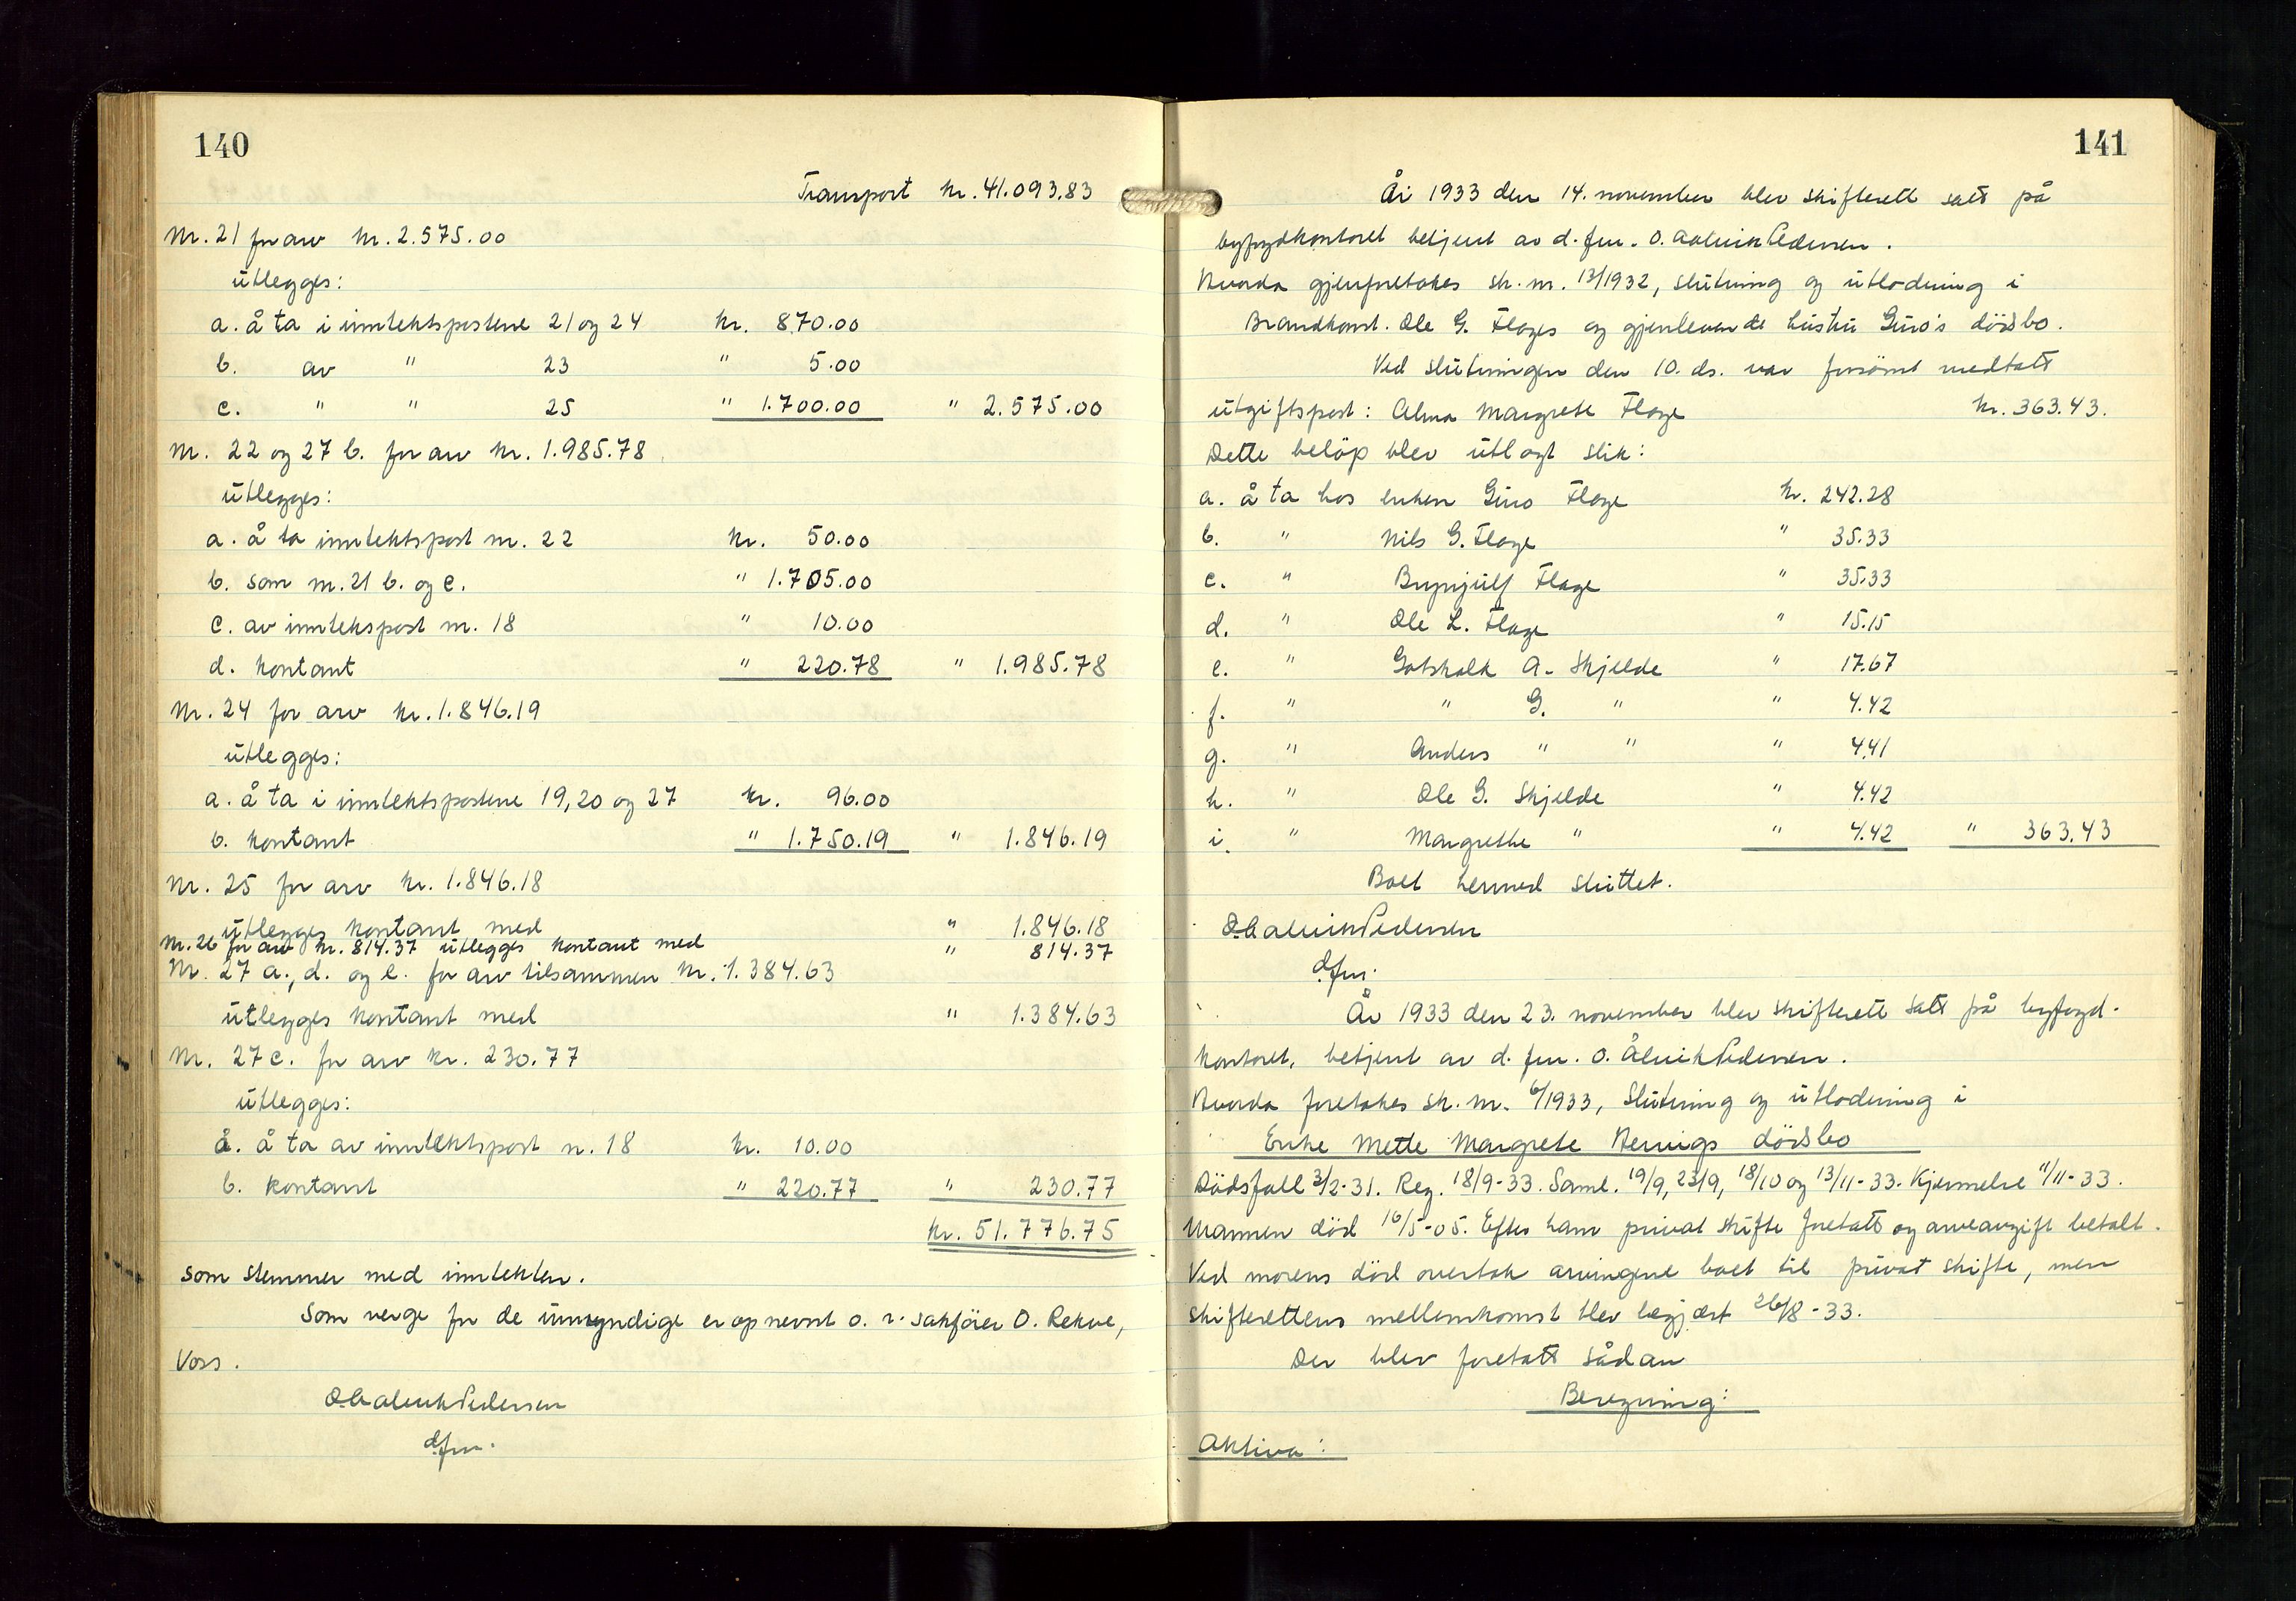 140
Transport kr. 41.093.83
Nr. 21 for arv kr. 2.575.00
utlegges:
a. å ta i inntektspostene 21 og 24 kr. 870.00
b. av " 23 " 5.00
c. " " 25 " 1.700.00 " 2.575.00
Nr. 22 og 27 b. for arv kr. 1.985.78
utlegges:
a. å ta inntektspost nr. 22 kr. 50.00
b. som nr. 21 b. og c. " 1.705.00
c. av inntekspost nr. 18 " 10.00
d. kontant " 220.78 " 1.985.78
Nr. 24 for arv kr. 1.846.19
utlegges:
a. å ta i inntektspostene 19, 20 og 27 kr. 96.00
b. kontant " 1.750.19 " 1.846.19
Nr. 25 for arv kr. 1.846.18
utlegges kontant med " 1.846.18
Nr. 26 for arv kr. 814.37 utlegges kontant med " 814.37
Nr. 27 a., d. og e. for arv tilsammen kr. 1.384.63
utlegges kontant med " 1.384.63
Nr. 27 c. for arv kr. 230.77
utlegges:
a. å ta av inntektspost n. 18 kr. 10.00
b. kontant " 220.77 " 230.77
kr. 51.776.75
som stemmer med inntekten.
Som verge for de umyndige er opnevnt o. r. sakfører O. Rekve,
Voss.
O. Aalvik Pedersen
d. fm.
141
År 1933 den 14. november blev skifterett satt på
byfogdkontoret betjent av d. fm. O. Aalvik Pedersen.
Hvorda gjenforetakes sk. nr. 13/1932, slutning og utlodning i
Brandkonst. Ole G. Flages og gjenlevende hustru Guro's dødsbo.
Ved slutningen den 10. ds. var forsømt medtatt
utgiftspost: Alma Margrete Flage kr. 363.43.
Dette beløp blev utlagt slik:
a. å ta hos enken Guro Flage kr. 242.28
b. " Nils G. Flage " 35.33
c. " Brynjulf Flage " 35.33
d. " Ole L. Flage " 15.15
e. " Gotskalk A. Skjelde " 17.67
f. " " G. " " 4.42
g. " Anders " " " 4.41
h. " Ole G. Skjelde " 4.42
i. " Margrethe " " 4.42 " 363.43
Boet hermed sluttet.
O. Aalvik Pedersen
d. fm.
År 1933 den 23. november blev skifterett satt på byfogd-
kontoret, betjent av d. fm. O. Ålvik Pedersen.
Hvorda foretakes sk. nr. 6/1933, slutning og utlodning i
Enke Mette Margrete dødsbo
Dødsfall 3/2-31. Reg. 18/9-33. Saml. 19/9, 23/9, 18/10 og 13/11-33. Kjennelse 11/11-33.
Mannen død 16/5-05. Efter ham privat skifte foretatt og arveavgift betalt.
Ved morens død overtok arvingene boet til privat skifte, men
skifterettens mellemkomst blev begjært 26/8-33.
Der blev foretatt sådan
Beregning:
Aktiva: